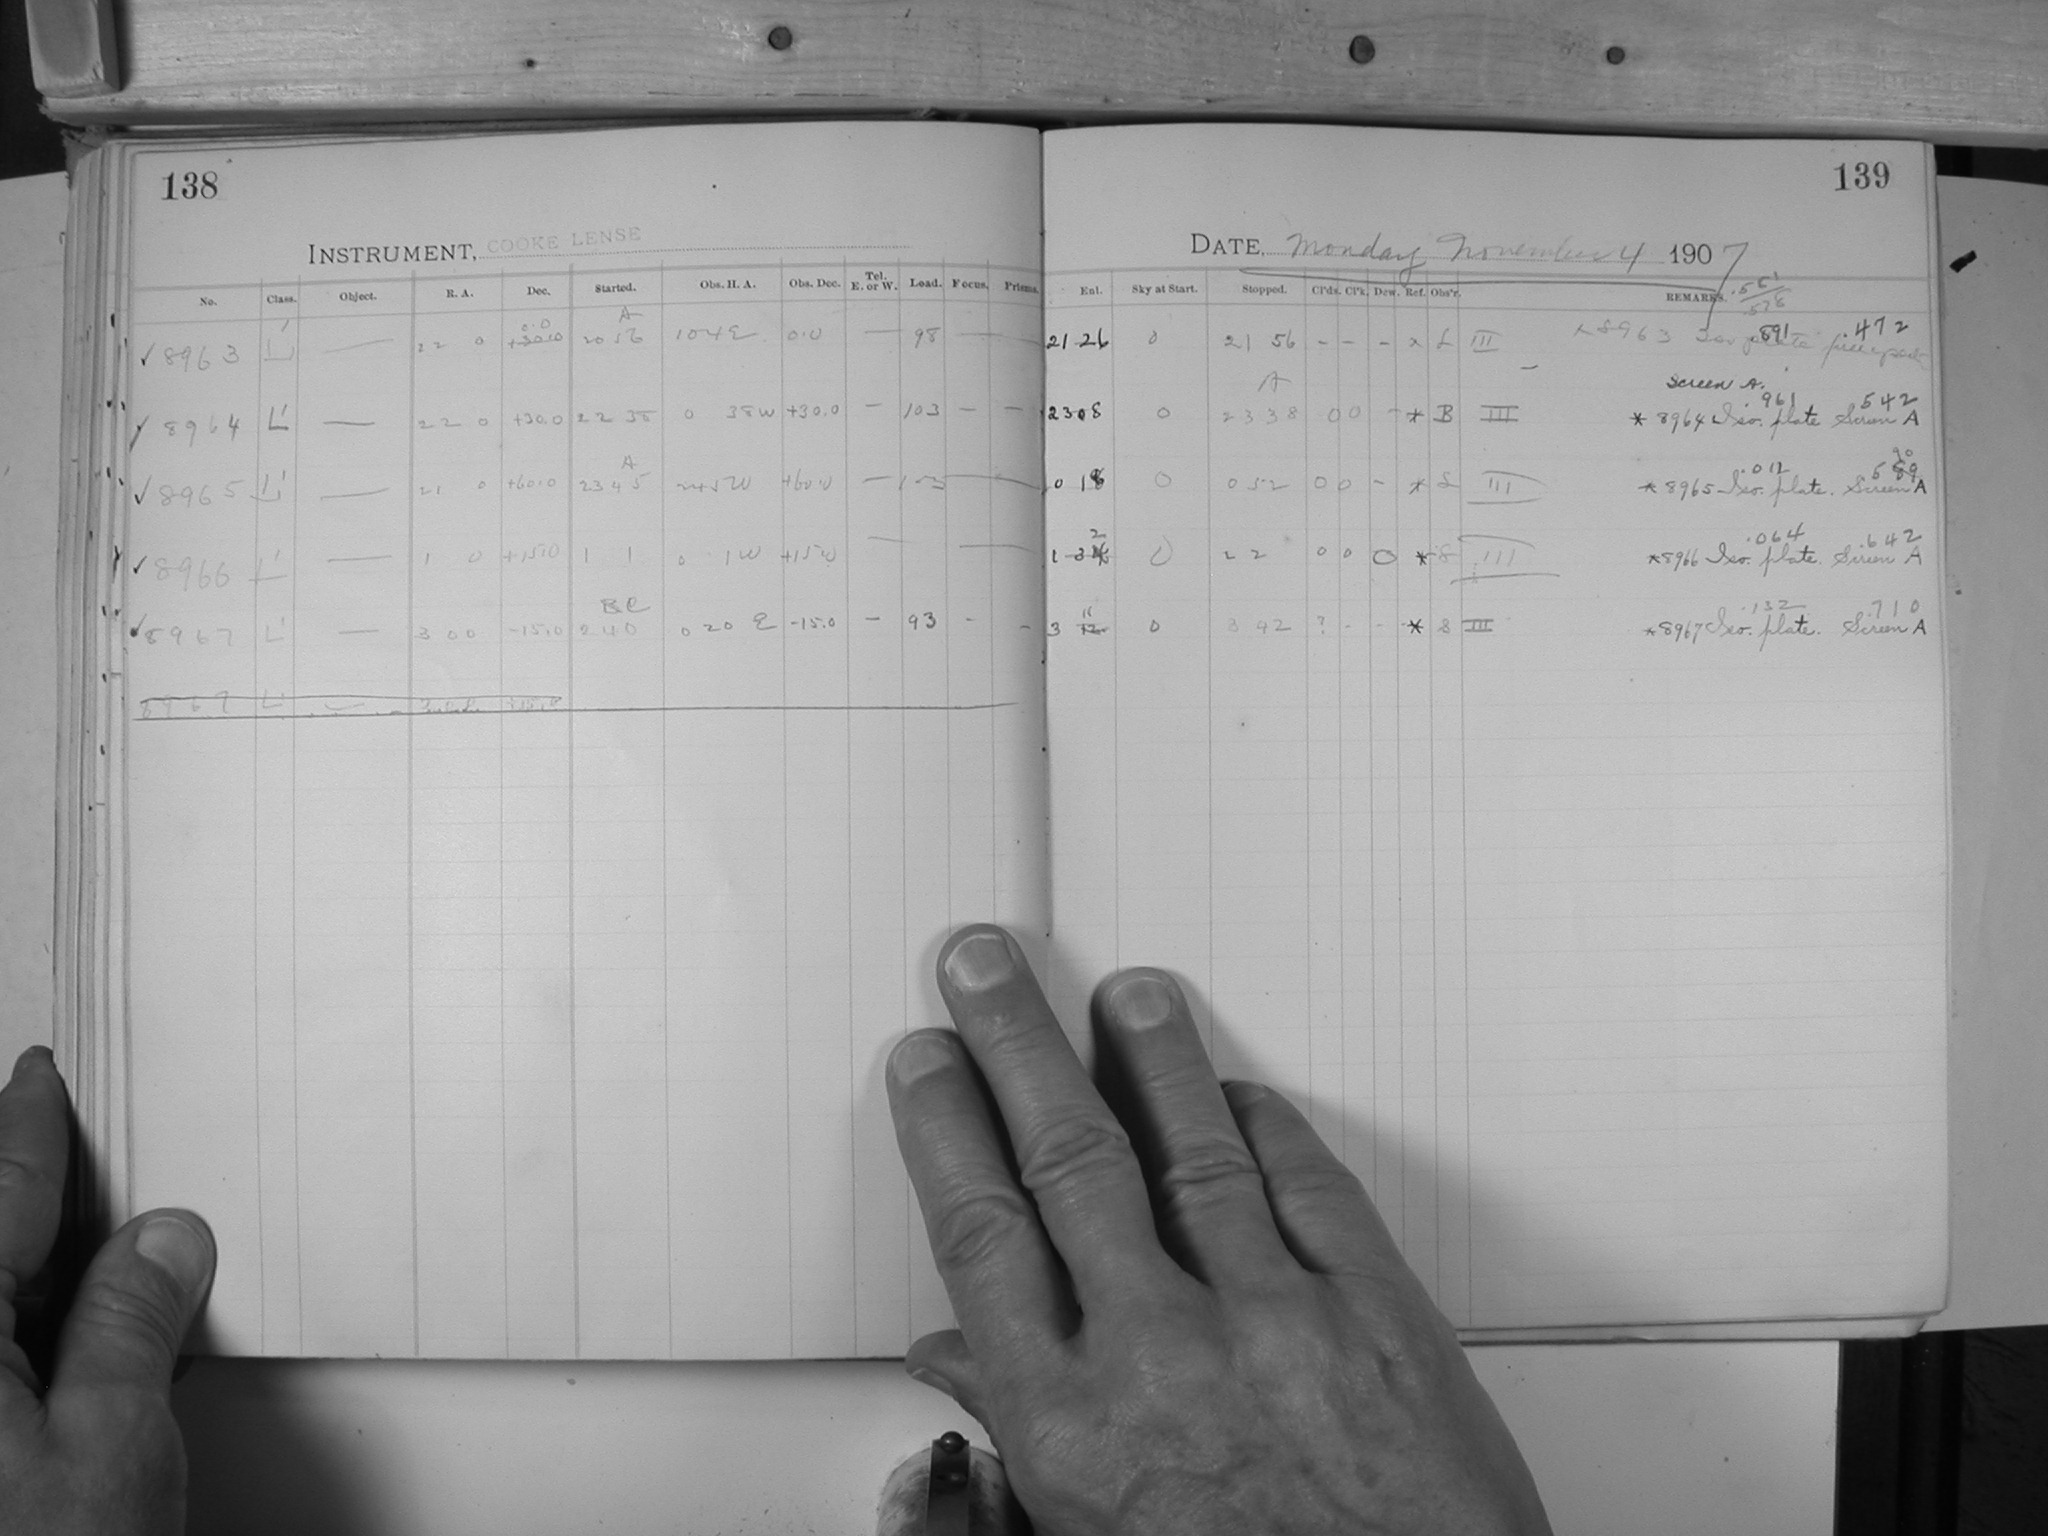 138
INSTRUMENT, COOKE LENSE
No. Class. Object. R. A. Dec. Started. Obs. H. A. Obs. Dec. Tel. E. or W. Load. Focus. Prisms.
0.0 A
✓ 8963 L' — 22 0 +30.0 20 56 1 04 E 0.0 — 98
✓ 8964 L' — 22 0 +30.0 22 38 0 38 W +30.0 — 103 – –
A
✓ 8965 L' — 21 0 +60.0 23 45 2 45 W +60.0 — 103
✓ 8966 L' — 1 0 +15.0 1 1 0 1 W +15.0 —
✓ 8967 L' — 3 00 -15.0 2 40 0 20 E -15.0 — 93 – –
8967 L' — +15.0
139
DATE, Monday November 4 1907
.561
.578
Enl. Sky at Start. Stopped. Cl'ds. Cl'k. Dew. Ref. Obs'r. REMARKS.
.891 .472
21 26 0 21 56 – – – × L III × 8963 Iso. plate
A Screen A.
.961 .542
23 08 0 23 38 0 0 – * B III * 8964 Iso. plate Screen A
.012
0 18 0 0 52 0 0 – * L III * 8965 Iso. plate. Screen A
2 .064 .642
1 0 2 2 0 0 0 * S III * 8966 Iso. plate. Screen A
11 .132 .710
3 12 0 3 42 ? – – * S III * 8967 Iso. plate. Screen A